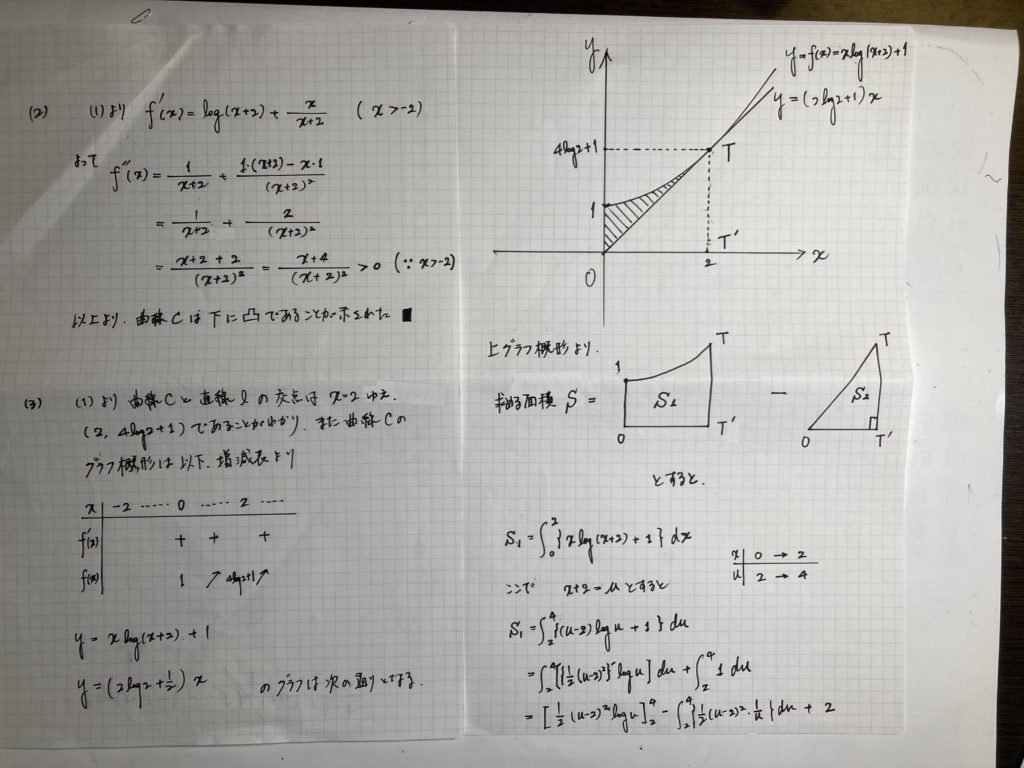 (2) (1)より f'(x) = log(x+2) + x/(x+2) (x>-2)
よって
f''(x) = 1/(x+2) + (1・(x+2) - x・1)/(x+2)²
= 1/(x+2) + 2/(x+2)²
= (x+2+2)/(x+2)² = (x+4)/(x+2)² > 0 (∵ x>-2)
以上より、曲線Cは下に凸であることが示された ■
(3) (1)より曲線Cと直線lの交点は x=2 ゆえ、
(2, 4log2+1)であることがわかり、また曲線Cの
グラフ概形は以下、増減表より
x -2 …… 0 …… 2 ……
f'(x) + + +
f(x) 1 ↗ 4log2+1 ↗
y = x log(x+2) + 1
y = (2log2 + 1/2) x のグラフは次の通りとなる.
y
y = f(x) = x log(x+2) + 1
y = (2log2+1) x
4log2+1
T
1
T'
0
2
x
上グラフ概形より.
求める面積 S =
1
T
S₁
0
T'
−
T
S₂
0
T'
とすると.
S₁ = ∫₀² {x log(x+2) + 1} dx
ここで x+2 = u とすると
x 0 → 2
u 2 → 4
S₁ = ∫₂⁴ {(u-2) log u + 1} du
= ∫₂⁴ [{1/2 (u-2)²}' log u] du + ∫₂⁴ 1 du
= [1/2 (u-2)² log u]₂⁴ - ∫₂⁴ {1/2 (u-2)²・1/u} du + 2